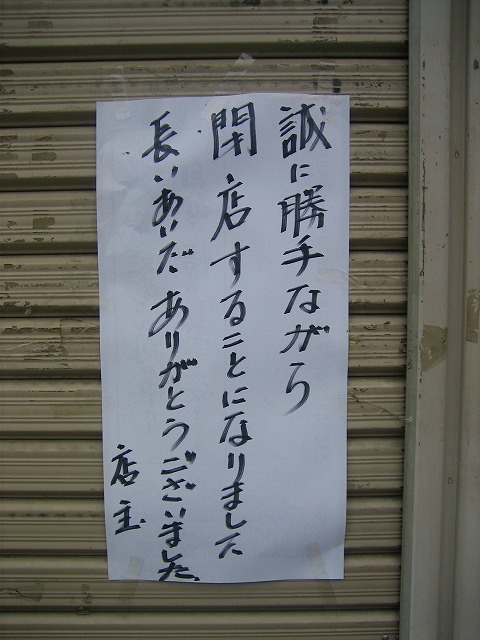 誠に勝手ながら
閉店することになりました
長いあいだありがとうございました
店主